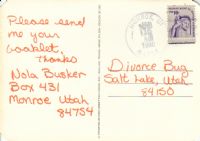 Please send
me your
booklet,
thanks
Nola Busker
Box 431
Monroe Utah
84754
MONROE, UT
1980
Divorce Bug
Salt Lake, Utah
84150